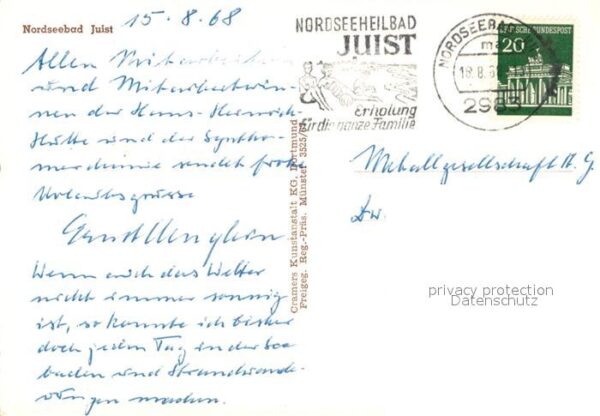 15.8.68
Nordseebad Juist
Allen Mitarbeitern
und Mitarbeiterin-
nen der Hans-Heinrich-
Hütte und der
sendet frohe
Urlaubsgrüsse
Wenn auch das Wetter
nicht immer sonnig
ist, so konnte ich bisher
doch jeden Tag in der See
baden und Strandwande-
rungen machen.
Cramers Kunstanstalt KG, Dortmund
Freigeg. Reg.-Präs. Münster
NORDSEEHEILBAD
JUIST
Erholung
für die ganze Familie
NORDSEEBAD
18.8.
2983
DEUTSCHE BUNDESPOST
20
Metallgesellschaft A.G.
privacy protection
Datenschutz